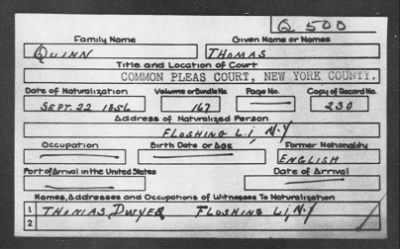 Q 500
Family Name Given Name or Names
QUINN THOMAS
Title and Location of Court
COMMON PLEAS COURT, NEW YORK COUNTY.
Date of Naturalization Volume or Bundle No. Page No. Copy of Record No.
SEPT. 22 1856 167 230
Address of Naturalized Person
FLUSHING L.I, N.Y
Occupation Birth Date or Age Former Nationality
ENGLISH
Port of Arrival in the United States Date of Arrival
Names, Addresses and Occupations of Witnesses To Naturalization
1 THOMAS, DWYER FLUSHING L.I, N.Y
2